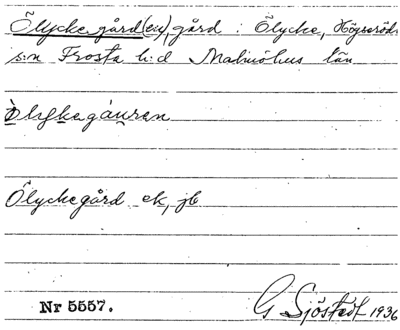 Ölyckegård(en), gård : Ölycke, Högseröd
s:n Frosta h:d Malmöhus län
Ölyckegård ek, jb
Nr 5557.
G Sjöstedt 1936